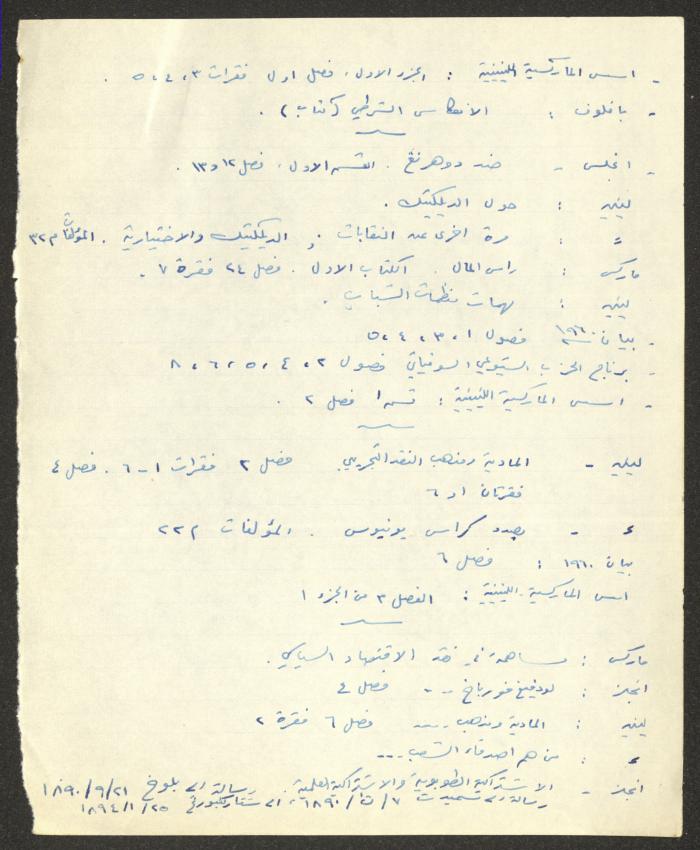 - اسس الماركسية اللينينية : الجزء الاول، فصل اول فقرات ٣، ٤، ٥ .
- بافلوف : الانعكاس الشرطي (كتاب) .
- انجلس - ضد دوهرنغ . القسم الاول، فصل ١٢ و ١٣ .
لينين : حول الديلكتيك .
= : مرة اخرى عن النقابات . الديلكتيك والاختيارية . المؤلفات م ٣٢
ماركس : راس المال . الكتاب الاول . فصل ٢٤ فقرة ٧ .
لينين : مهمات منظمات الشباب .
- بيان ١٩٦٠ فصول ١، ٣، ٤، ٥
- برنامج الحزب الشيوعي السوفياتي فصول ٢، ٤، ٥، ٦، ٨
- اسس الماركسية اللينينية : قسم ١ فصل ٢ .
لينين - المادية ومذهب النقد التجريبي فصل ٢ فقرات ١ - ٦ . فصل ٤
فقرتان ١ و ٦
= - بصدد كراس يونيوس . المؤلفات م ٢٢
بيان ١٩٦٠ : فصل ٦
اسس الماركسية اللينينية : الفصل ٣ من الجزء ١
ماركس : مساهمة في نقد الاقتصاد السياسي .
انجلز : لودفيغ فورباخ .. فصل ٤
لينين : المادية ومذهب .... فصل ٦ فقرة ٢
= : من هم اصدقاء الشعب ...
انجلز - الاشتراكية الطوبوية والاشتراكية العلمية . رسالة الى بلوخ ١٨٩٠/٩/٢١
رسالة الى شميدت ٧/ /١٨٩٠، الى ستاركنبورغ ١٨٩٤/١/٢٥